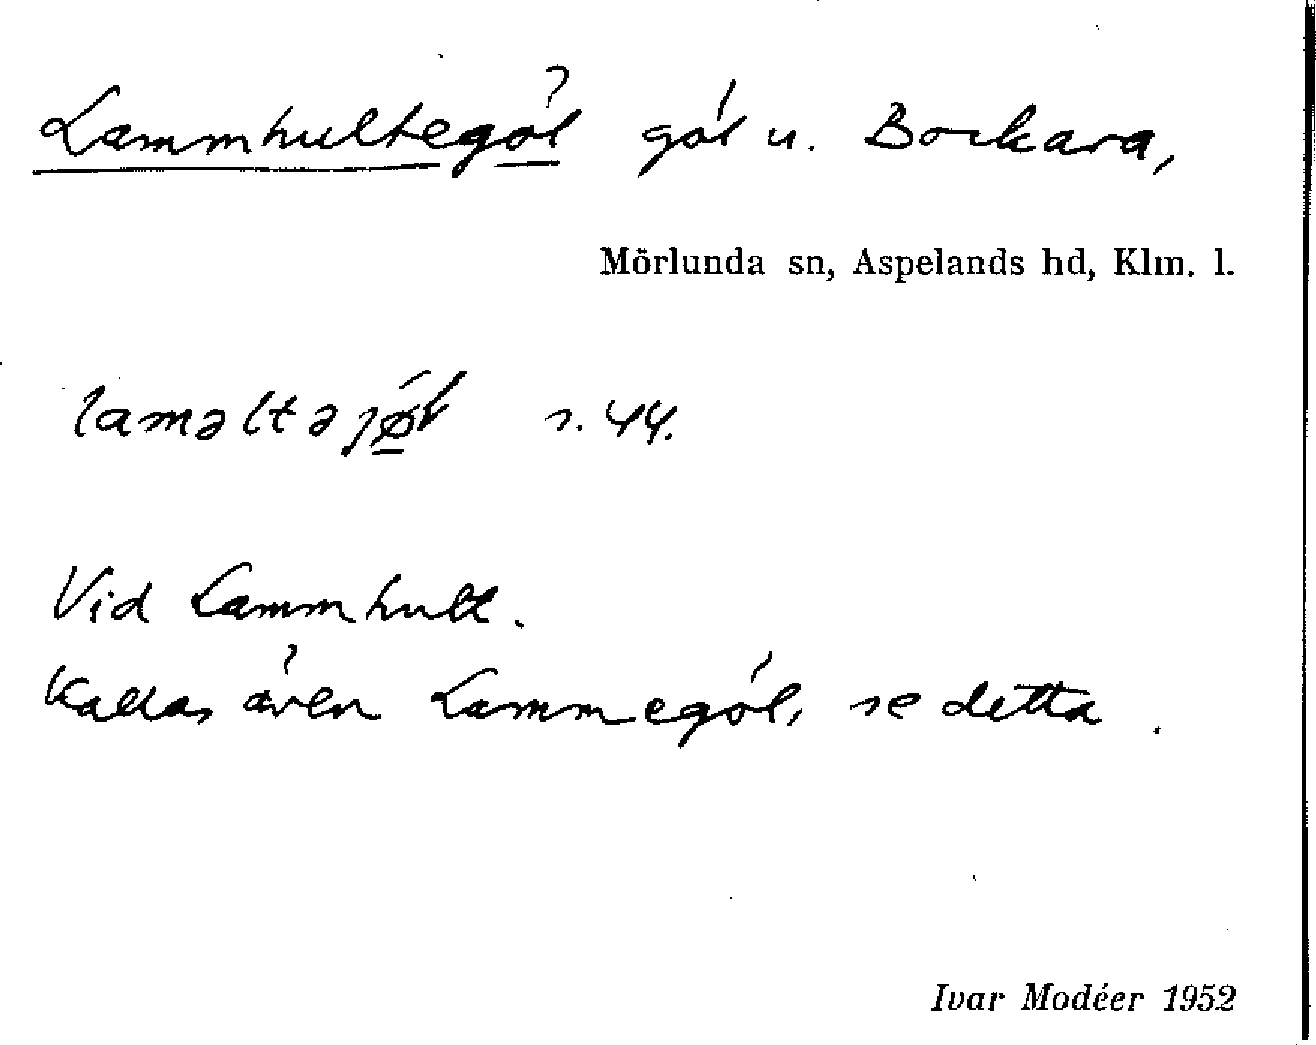 Lammhultegöl göl u. Bockara,
Mörlunda sn, Aspelands hd, Klm. l.
laməltəjǿ̱l s. 44.
Vid Lammhult.
Kallas även Lammegöl, se detta.
Ivar Modéer 1952